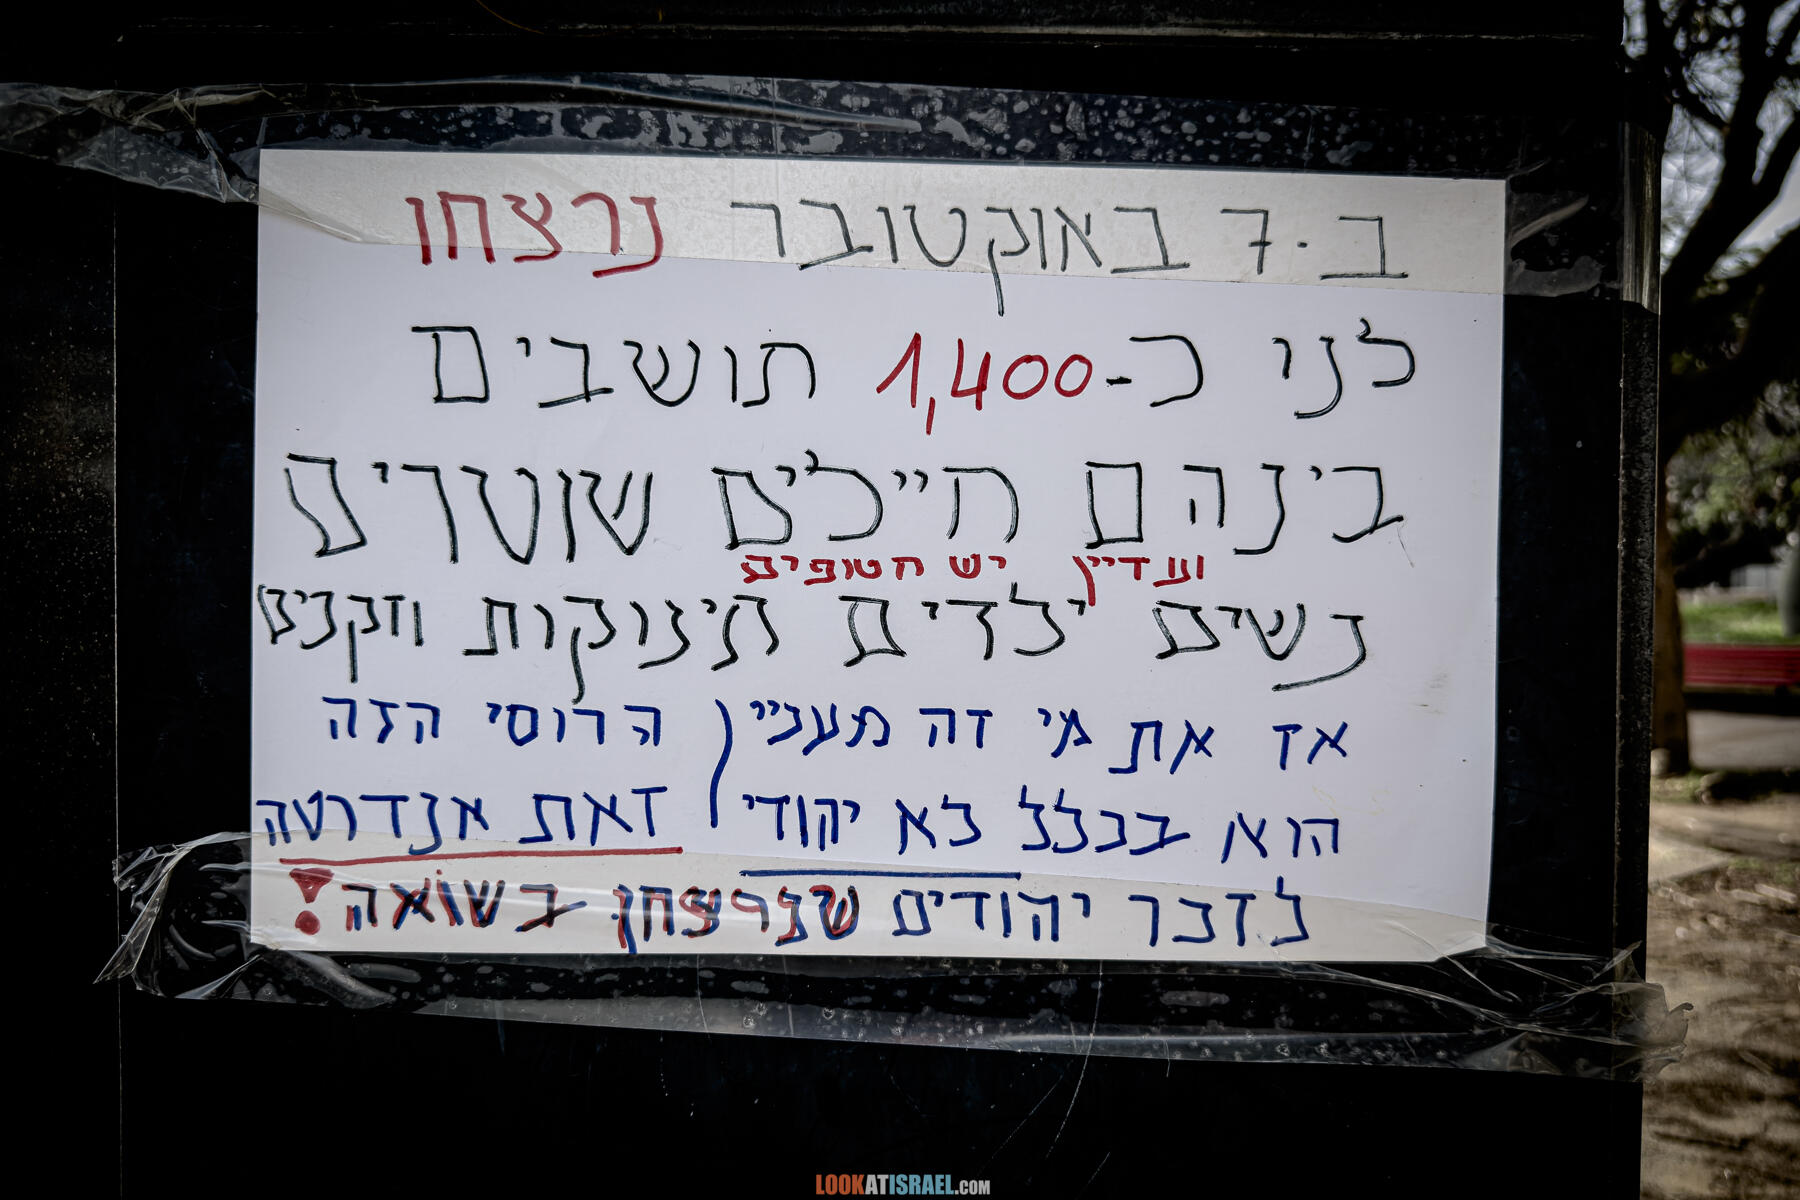 ב-7 באוקטובר נרצחו
לני כ-1,400 תושבים
בינהם חיילים שוטרים
ועדיין יש חטופים
נשים ילדים תינוקות וזקנים
אז את מי זה מעניין הרוסי הזה
הוא בכלל לא יהודי זאת אנדרטה
לזכר יהודים שנרצחו בשואה!
LOOKATISRAEL.COM